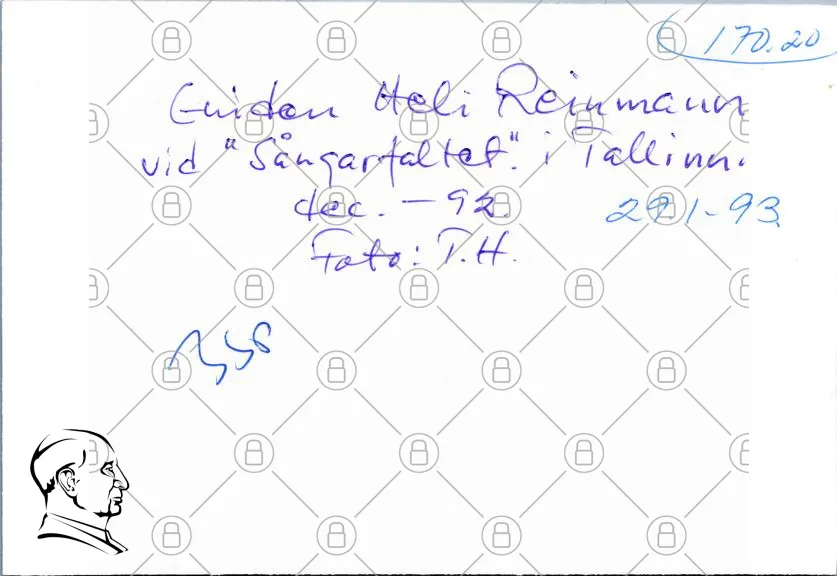 170.20
Guiden Heli Reinmann
vid "Sångarfältet" i Tallinn.
dec. - 92.
29.1-93
Foto: T.H.